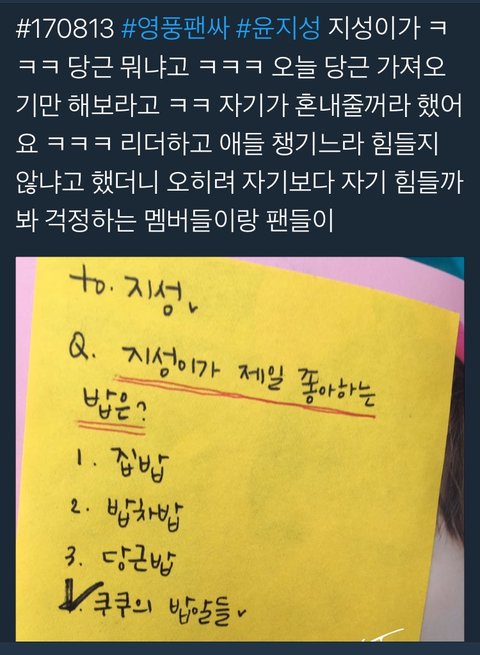 #170813 #영풍팬싸 #윤지성 지성이가 ㅋ
ㅋㅋ 당근 뭐냐고 ㅋㅋㅋ 오늘 당근 가져오
기만 해보라고 ㅋㅋ 자기가 혼내줄꺼라 했어
요 ㅋㅋㅋ 리더하고 애들 챙기느라 힘들지
않냐고 했더니 오히려 자기보다 자기 힘들까
봐 걱정하는 멤버들이랑 팬들이
to. 지성
Q. 지성이가 제일 좋아하는
밥은?
1. 집밥
2. 밥차밥
3. 당근밥
쿠쿠의 밥알들